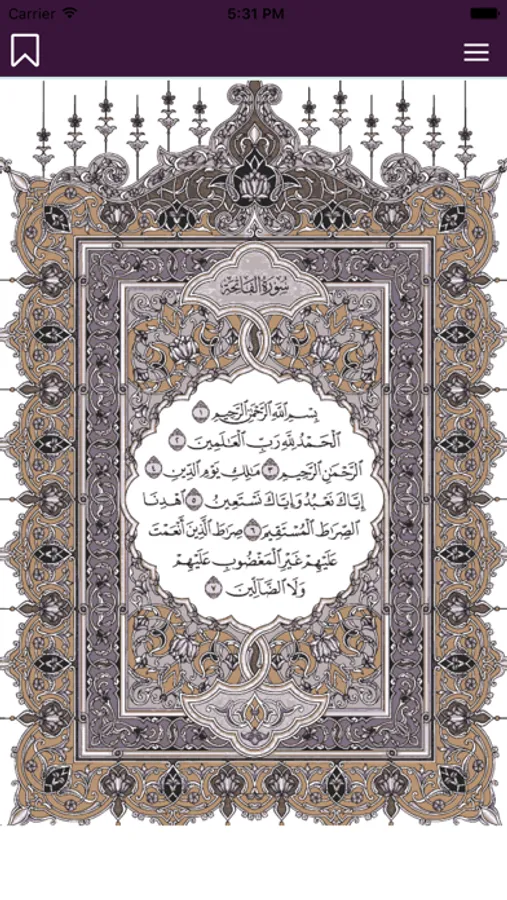 Carrier 5:31 PM
سُورَةُ الْفَاتِحَةِ
بِسْمِ ٱللَّهِ ٱلرَّحْمَٰنِ ٱلرَّحِيمِ ١
ٱلْحَمْدُ لِلَّهِ رَبِّ ٱلْعَٰلَمِينَ ٢
ٱلرَّحْمَٰنِ ٱلرَّحِيمِ ٣ مَٰلِكِ يَوْمِ ٱلدِّينِ ٤
إِيَّاكَ نَعْبُدُ وَإِيَّاكَ نَسْتَعِينُ ٥ ٱهْدِنَا
ٱلصِّرَٰطَ ٱلْمُسْتَقِيمَ ٦ صِرَٰطَ ٱلَّذِينَ أَنْعَمْتَ
عَلَيْهِمْ غَيْرِ ٱلْمَغْضُوبِ عَلَيْهِمْ
وَلَا ٱلضَّآلِّينَ ٧